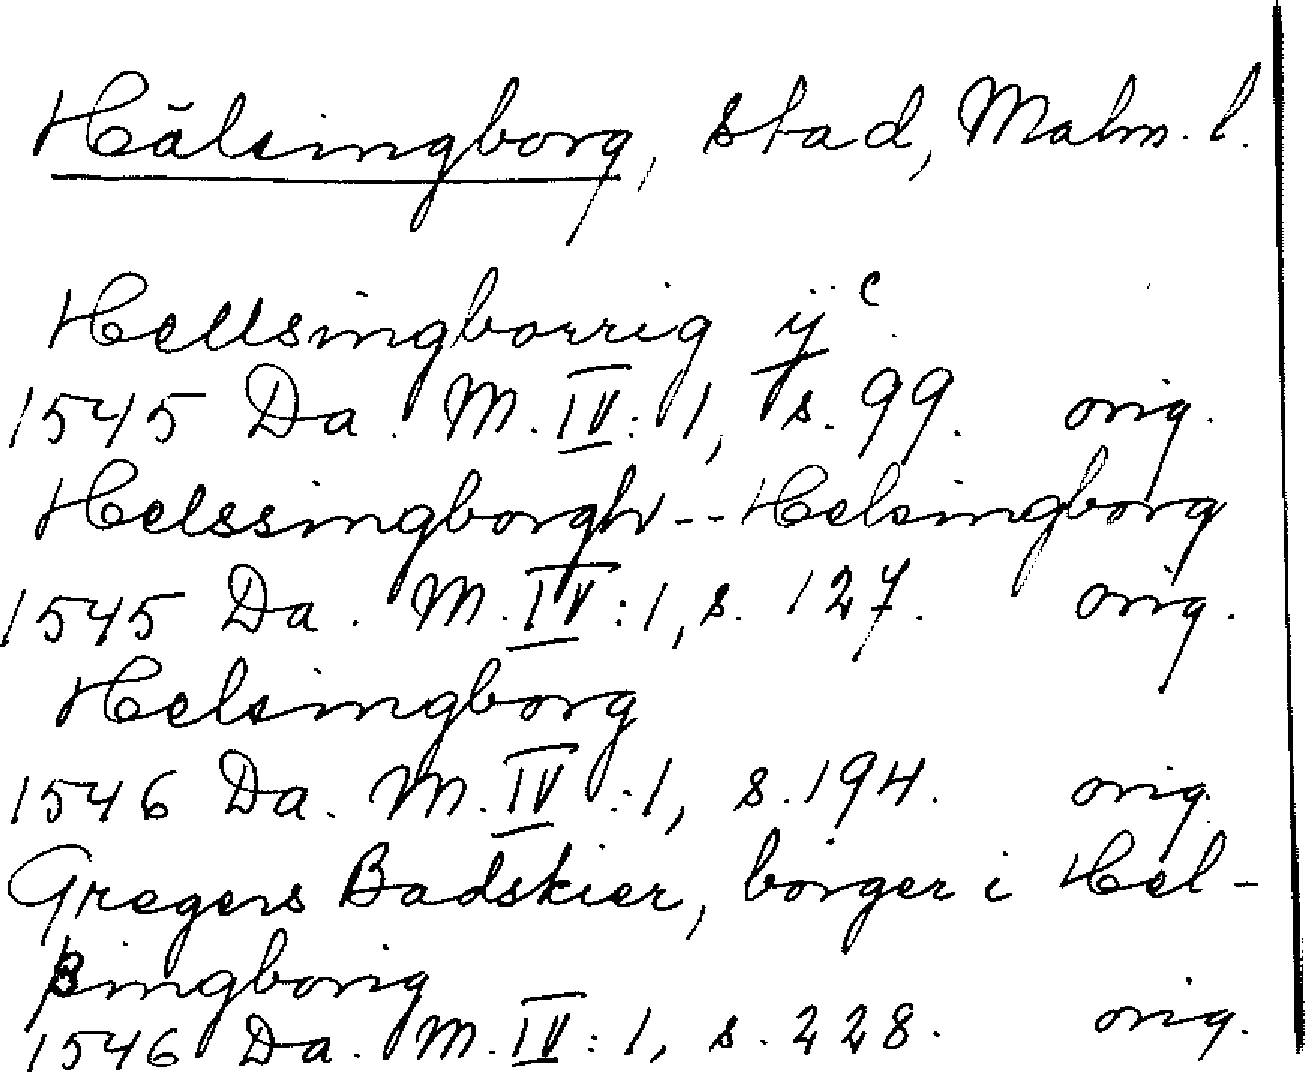 Hälsingborg, stad, Malm. l.
Hellsingborrig ijᶜ.
1545 Da. M. IV:1, s. 99. orig.
Helssingborgh -- Helsingborg
1545 Da. M. IV:1, s. 127. orig.
Helsingborg
1546 Da. M. IV:1, s. 194. orig.
Gregers Badskier, borger i Hel-
ßingborig
1546 Da. M. IV:1, s. 228. orig.